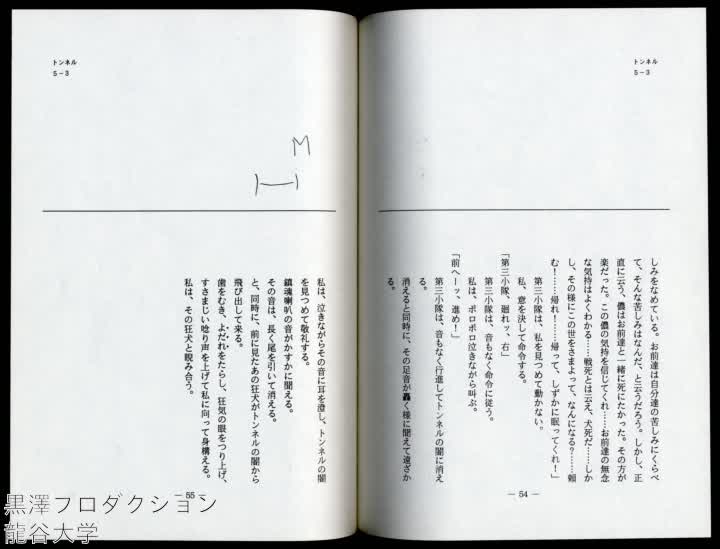 トンネル
S-3
しみをなめている。お前達は自分達の苦しみにくらべ
て、そんな苦しみはなんだ、と云うだろう。しかし、正
直に云う、儂はお前達と一緒に死にたかった。その方が
楽だった。この儂の気持を信じてくれ……お前達の無念
な気持はよくわかる……戦死とは云え、犬死だ……しか
し、その様にこの世をさまよって、なんになる?……頼
む!……帰れ!……帰って、しずかに眠ってくれ!」
第三小隊は、私を見つめて動かない。
私、意を決して命令する。
「第三小隊、廻れッ、右」
第三小隊は、音もなく命令に従う。
私は、ボロボロ泣きながら叫ぶ。
「前へーッ、進め!」
第三小隊は、音もなく行進してトンネルの闇に消え
る。
消えると同時に、その足音が轟く様に聞えて遠ざか
る。
— 54 —
トンネル
S-3
M
私は、泣きながらその音に耳を澄し、トンネルの闇
を見つめて敬礼する。
鎮魂喇叭の音がかすかに聞える。
その音は、長く尾を引いて消える。
と、同時に、前に見たあの狂犬がトンネルの闇から
飛び出して来る。
歯をむき、よだれをたらし、狂気の眼をつり上げ、
すさまじい唸り声を上げて私に向って身構える。
私は、その狂犬と睨み合う。
— 55 —
黒澤プロダクション
龍谷大学